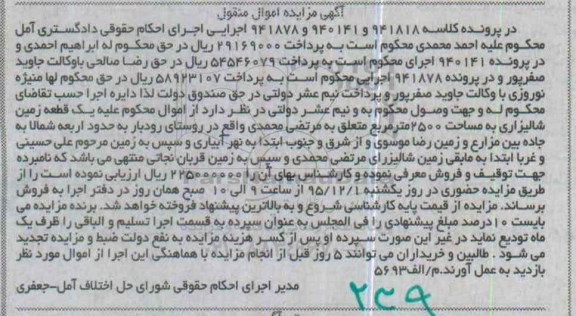 آگهی مزایده اموال منقول
در پرونده کلاسه ۹۴۱۸۱۸ و ۹۴۰۱۴۱ و ۹۴۱۸۷۸ اجرایی اجرای احکام حقوقی دادگستری آمل
محکوم علیه احمد محمدی محکوم است به پرداخت ۲۹۱۶۹۰۰۰ ریال در حق محکوم له ابراهیم احمدی و
در پرونده ۹۴۰۱۴۱ اجرای محکوم است به پرداخت ۵۴۵۴۶۰۷۹ ریال در حق رضا صالحی باوکالت جاوید
صفرپور و در پرونده ۹۴۱۸۷۸ اجرایی محکوم است به پرداخت ۵۸۹۲۳۱۰۷ ریال در حق محکوم لها منیژه
نوروزی با وکالت جاوید صفرپور و پرداخت نیم عشر دولتی در حق صندوق دولت لذا دایره اجرا حسب تقاضای
محکوم له و جهت وصول محکوم به و نیم عشر دولتی در نظر دارد از اموال محکوم علیه یک قطعه زمین
شالیزاری به مساحت ۲۵۰۰مترمربع متعلق به مرتضی محمدی واقع در روستای رودبار به حدود اربعه شمالا به
جاده بین مزارع و زمین رضا موسوی و از شرق و جنوب ابتدا به نهر آبیاری و سپس به زمین مرحوم علی حسینی
و غربا ابتدا به مابقی زمین شالیزرای مرتضی محمدی و سپس به زمین قربان نجاتی منتهی می باشد که نامبرده
جهت توقیف و فروش معرفی نموده و کارشناس بهای آن را ۲۲۵۰۰۰۰۰۰ ریال ارزیابی نموده است را از
طریق مزایده حضوری در روز یکشنبه ۹۵/۱۲/۱ از ساعت ۹ الی ۱۰ صبح همان روز در دفتر اجرا به فروش
برساند. مزایده از قیمت پایه کارشناسی شروع و به بالاترین پیشنهاد فروخته خواهد شد. برنده مزایده می
بایست ۱۰درصد مبلغ پیشنهادی را فی المجلس به عنوان سپرده به قسمت اجرا تسلیم و الباقی را ظرف یک
ماه تودیع نماید در غیر این صورت سپرده او پس از کسر هزینه مزایده به نفع دولت ضبط و مزایده تجدید
می شود . طالبین و خریداران می توانند ۵ روز قبل از انجام مزایده با هماهنگی این اجرا از اموال مورد نظر
بازدید به عمل آورند.م/الف۵۶۹۳
مدیر اجرای احکام حقوقی شورای حل اختلاف آمل-جعفری
۲۳۹